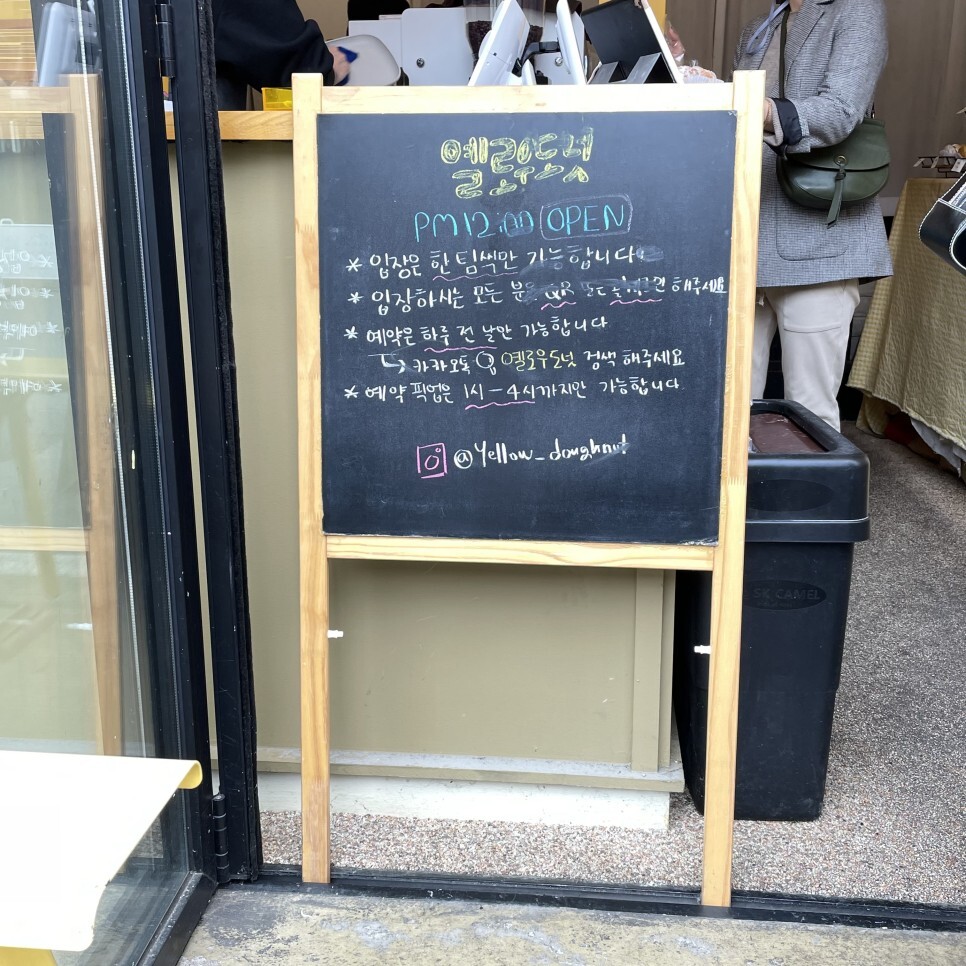 옐로우도넛
PM 12:00 OPEN
* 입장은 한 팀씩만 가능합니다
* 입장하시는 모든 분 QR 해주세요
* 예약은 하루 전 날만 가능합니다
↳ 카카오톡 옐로우도넛 검색 해주세요
* 예약 픽업은 1시-4시까지만 가능합니다
@Yellow_doughnut
SK CAMEL